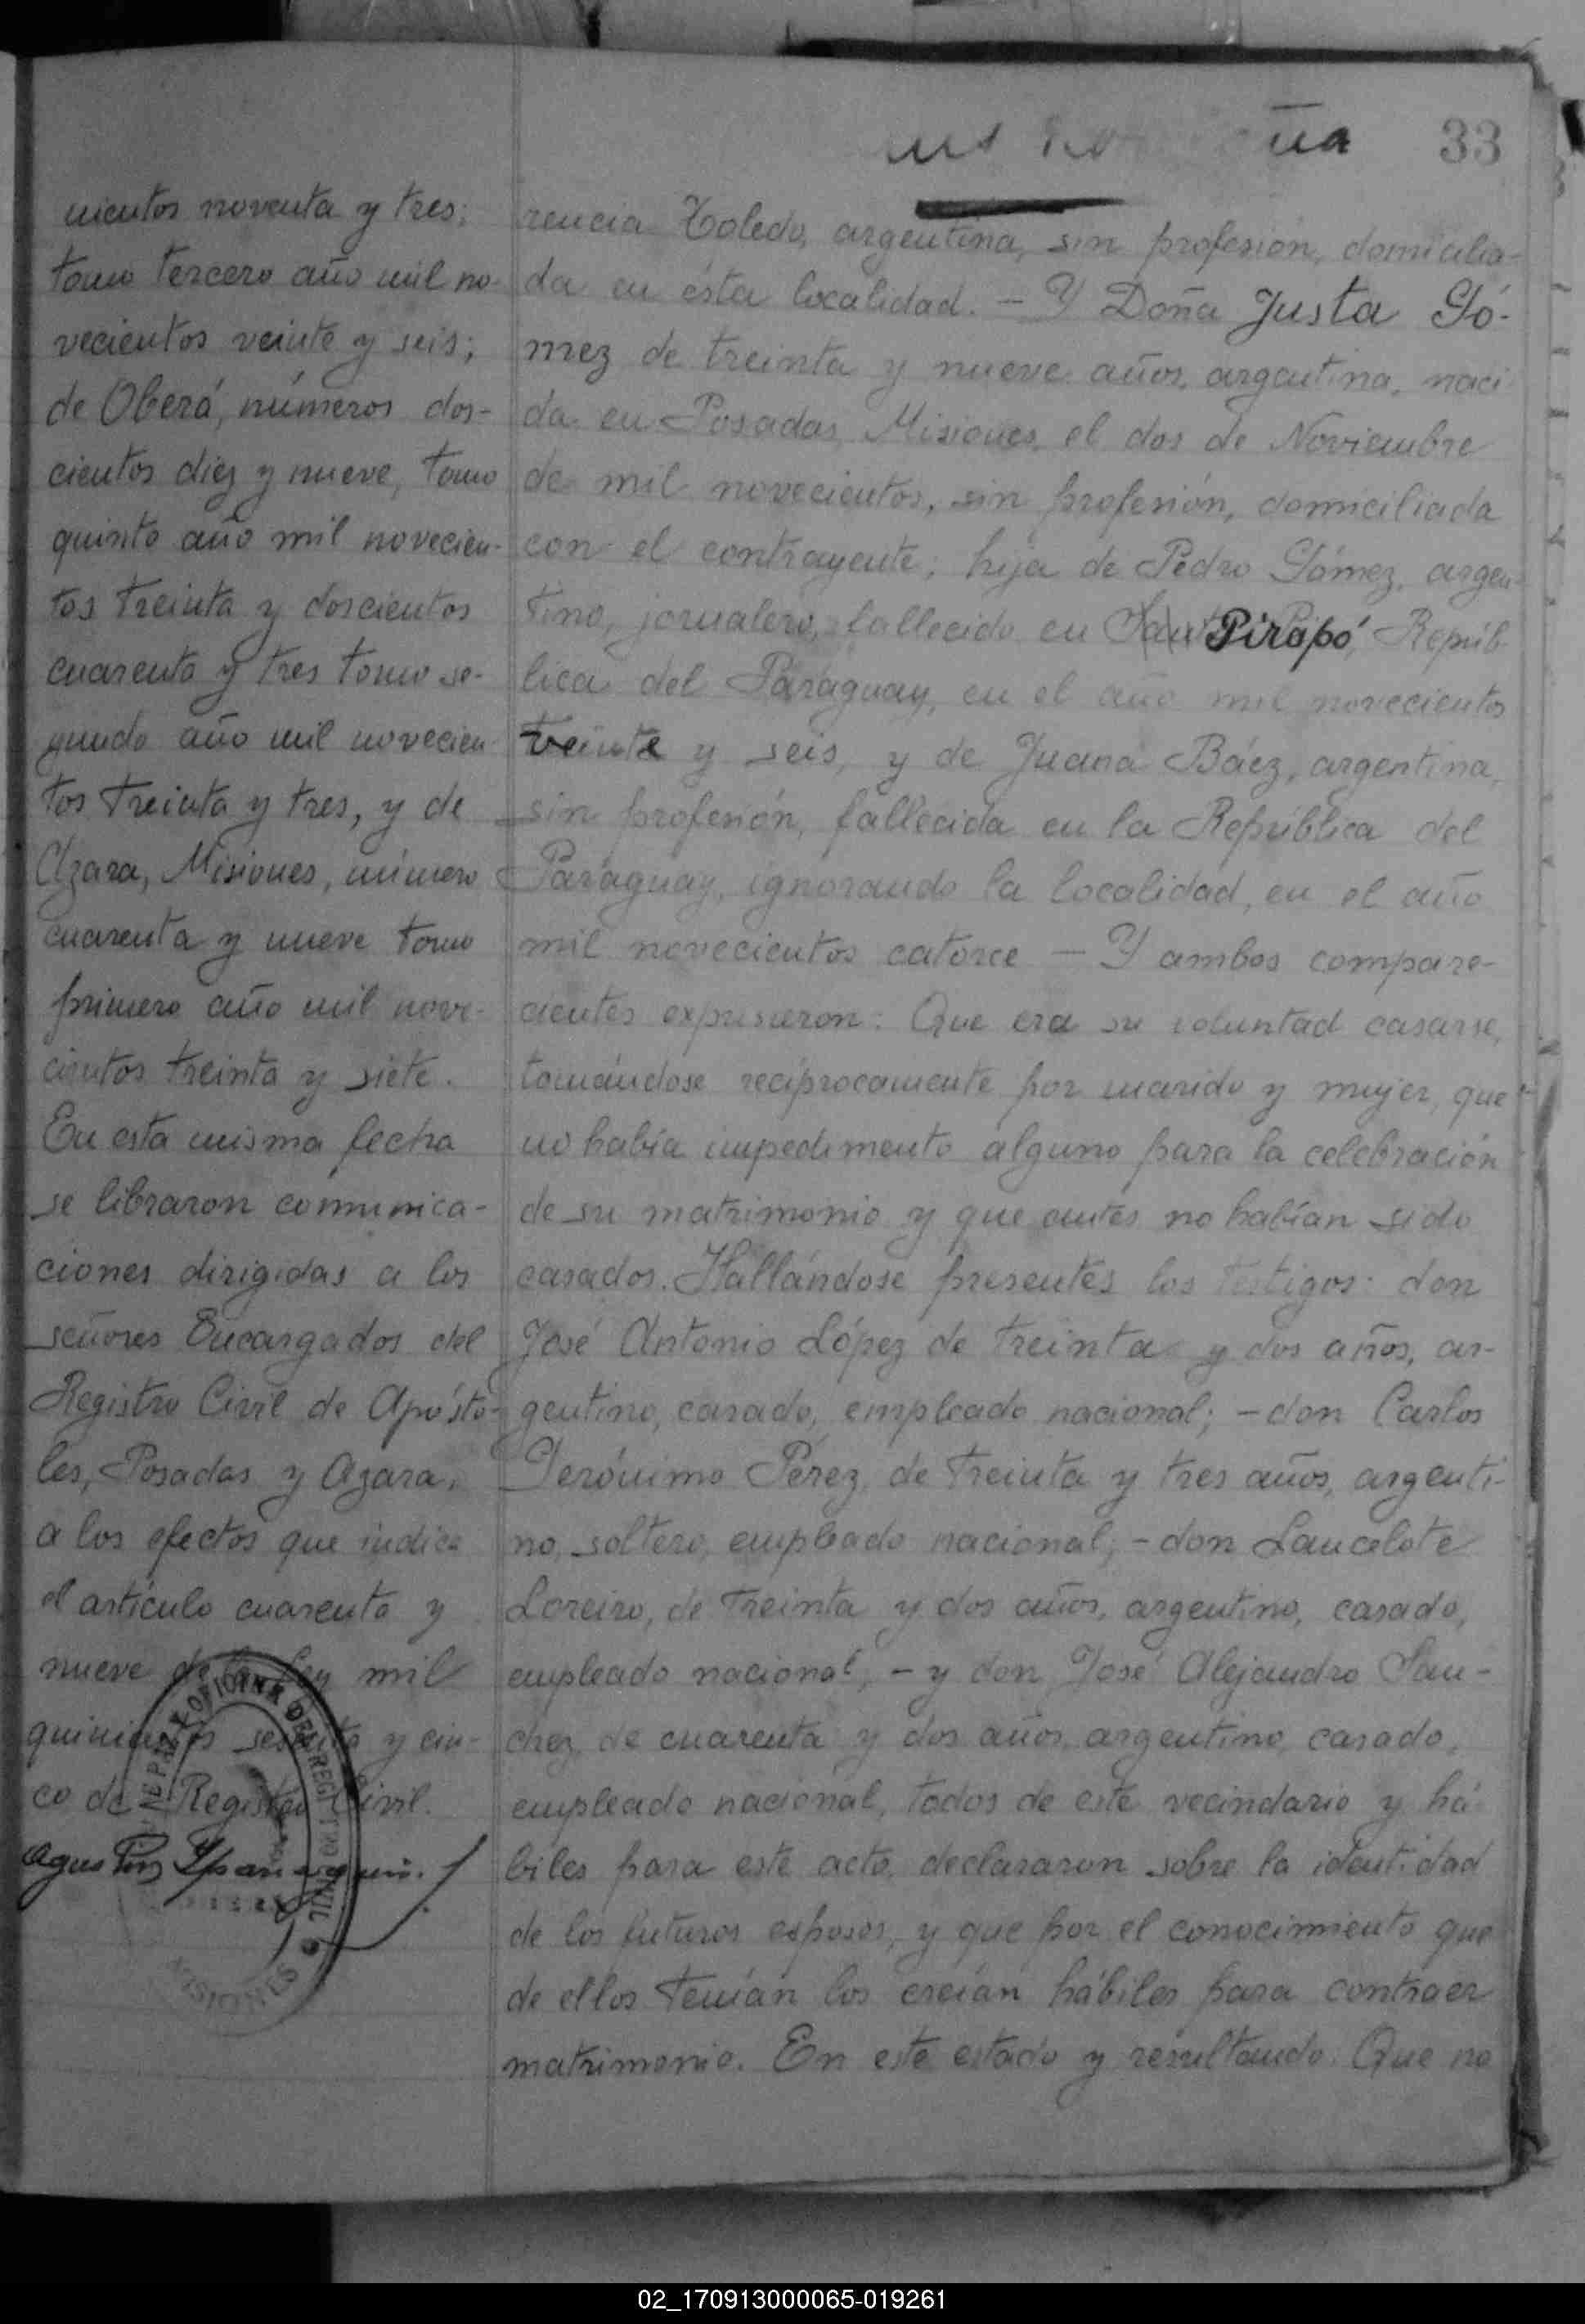 33
cientos noventa y tres;
tomo tercero año mil no-
vecientos veinte y seis;
de Oberá, números dos-
cientos diez y nueve, tomo
quinto año mil novecien-
tos treinta y doscientos
cuarenta y tres tomo se-
gundo año mil novecien-
tos treinta y tres, y de
Azara, Misiones, número
cuarenta y nueve tomo
primero año mil nove-
cientos treinta y siete.
En esta misma fecha
se libraron comunica-
ciones dirigidas a los
señores Encargados del
Registro Civil de Apósto-
les, Posadas y Azara,
a los efectos que indica
el artículo cuarenta y
nueve de la Ley mil
quinientos sesenta y cin-
co de Registro Civil.
DE PAZ Y OFICINA DEL REGISTRO CIVIL
MISIONES
rencia Toledo, argentina, sin profesión, domicilia-
da en ésta localidad. — Y Doña Justa Gó-
mez de treinta y nueve años, argentina, naci
da en Posadas Misiones, el dos de Noviembre
de mil novecientos, sin profesión, domiciliada
con el contrayente; hija de Pedro Gómez, argen-
tino, jornalero, fallecido en Pirapó, Repúb-
lica del Paraguay, en el año mil novecientos
veinte y seis, y de Juana Báez, argentina,
sin profesión, fallecida en la República del
Paraguay, ignorando la localidad, en el año
mil novecientos catorce — Y ambos compare-
cientes expusieron: Que era su voluntad casarse,
tomándose recíprocamente por marido y mujer, que
no había impedimento alguno para la celebración
de su matrimonio y que antes no habían sido
casados. Hallándose presentes los testigos: don
José Antonio López de treinta y dos años, ar-
gentino, casado, empleado nacional; — don Carlos
Jerónimo Pérez, de treinta y tres años, argenti-
no, soltero, empleado nacional; — don Lancelote
Loreiro, de treinta y dos años, argentino, casado,
empleado nacional, — y don José Alejandro San-
chez, de cuarenta y dos años, argentino, casado,
empleado nacional, todos de este vecindario y há-
biles para este acto, declararon sobre la identidad
de los futuros esposos, y que por el conocimiento que
de ellos tenían los creían hábiles para contraer
matrimonio. En este estado y resultando: Que no
02_170913000065-019261